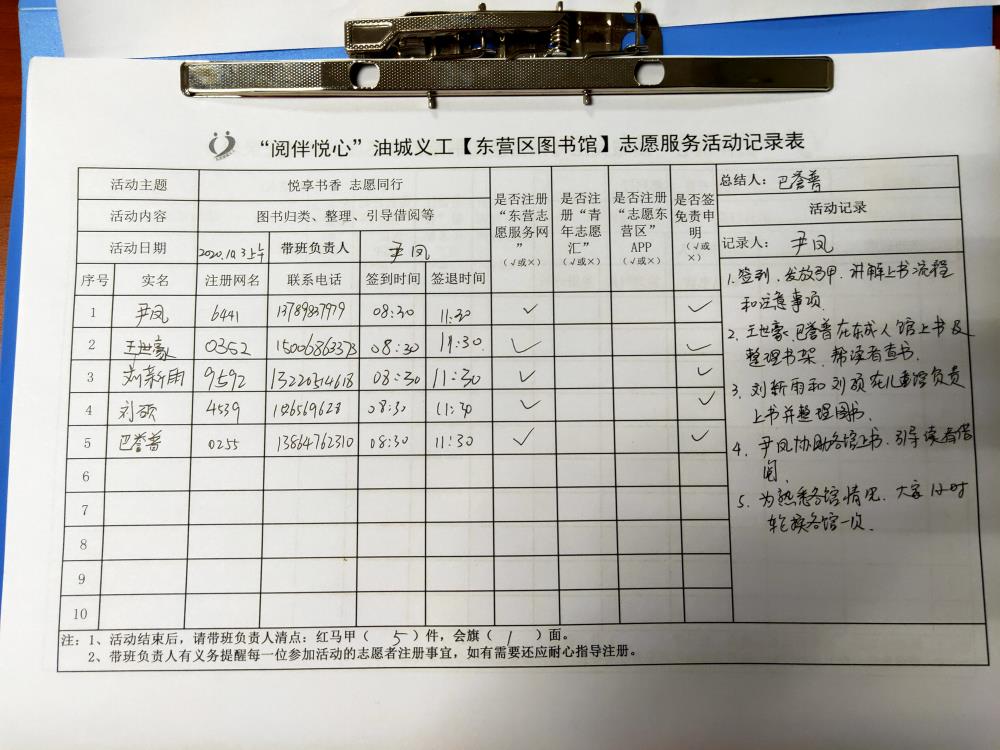 “阅伴悦心”油城义工【东营区图书馆】志愿服务活动记录表
活动主题 悦享书香 志愿同行
活动内容 图书归类、整理、引导借阅等
活动日期 2020.10.3上午 带班负责人 尹凤
序号 实名 注册网名 联系电话 签到时间 签退时间 是否注册“东营志愿服务网”（√或×） 是否注册“青年志愿汇”（√或×） 是否注册“志愿东营区”APP（√或×） 是否签免责申明（√或×）
1 尹凤 6441 13789837979 08:30 11:30 √ √
2 王世豪 0352 15006863373 08:30 11:30 √ √
3 刘新雨 9592 13220514618 08:30 11:30 √ √
4 刘硕 4539 08:30 11:30 √ √
5 巴誉普 0255 13864762310 08:30 11:30 √ √
6
7
8
9
10
总结人：巴誉普
活动记录
记录人：尹凤
1.签到、发放马甲、讲解上书流程
和注意事项
2.王世豪、巴誉普在东成人馆上书及
整理书架，帮读者查书.
3.刘新雨和刘硕在儿童馆负责
上书并整理图书.
4.尹凤协助各馆上书.引导读者借
阅.
5.为熟悉各馆情况.大家1小时
轮换各馆一次.
注：1、活动结束后，请带班负责人清点：红马甲（ 5 ）件，会旗（ 1 ）面。
2、带班负责人有义务提醒每一位参加活动的志愿者注册事宜，如有需要还应耐心指导注册。